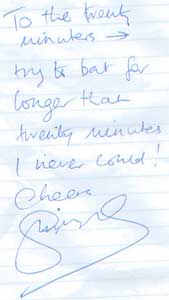 To the twenty
minuters →
try to bat for
longer than
twenty minutes
I never could!
Cheers